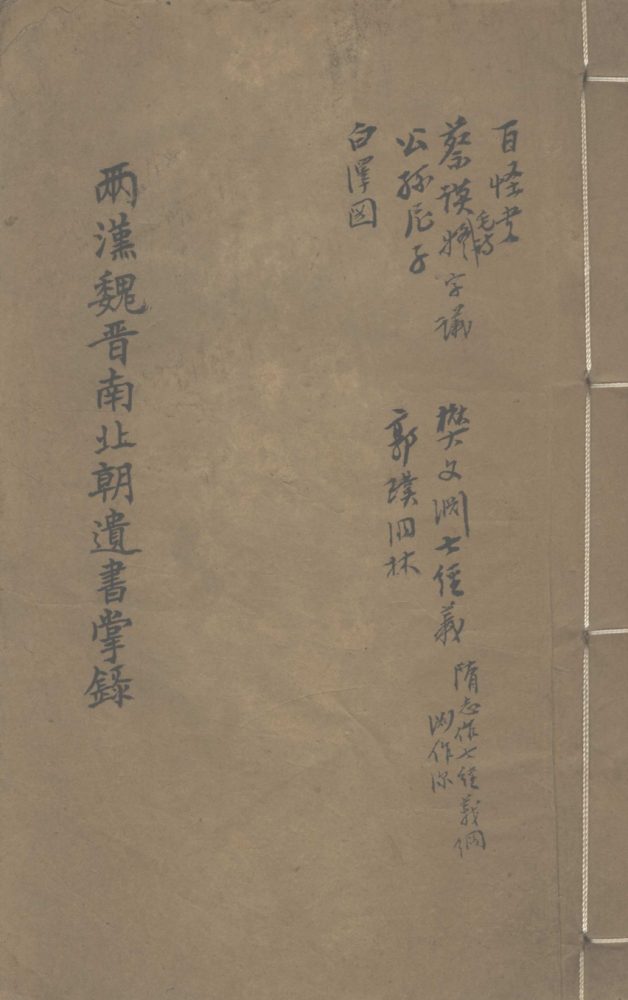 百怪书
蔡謨毛詩疑字議
公孫尼子
白澤図
樊文渊七經義
隋志作七經義綱
渊作深
郭璞洞林
兩漢魏晋南北朝遺書掌錄